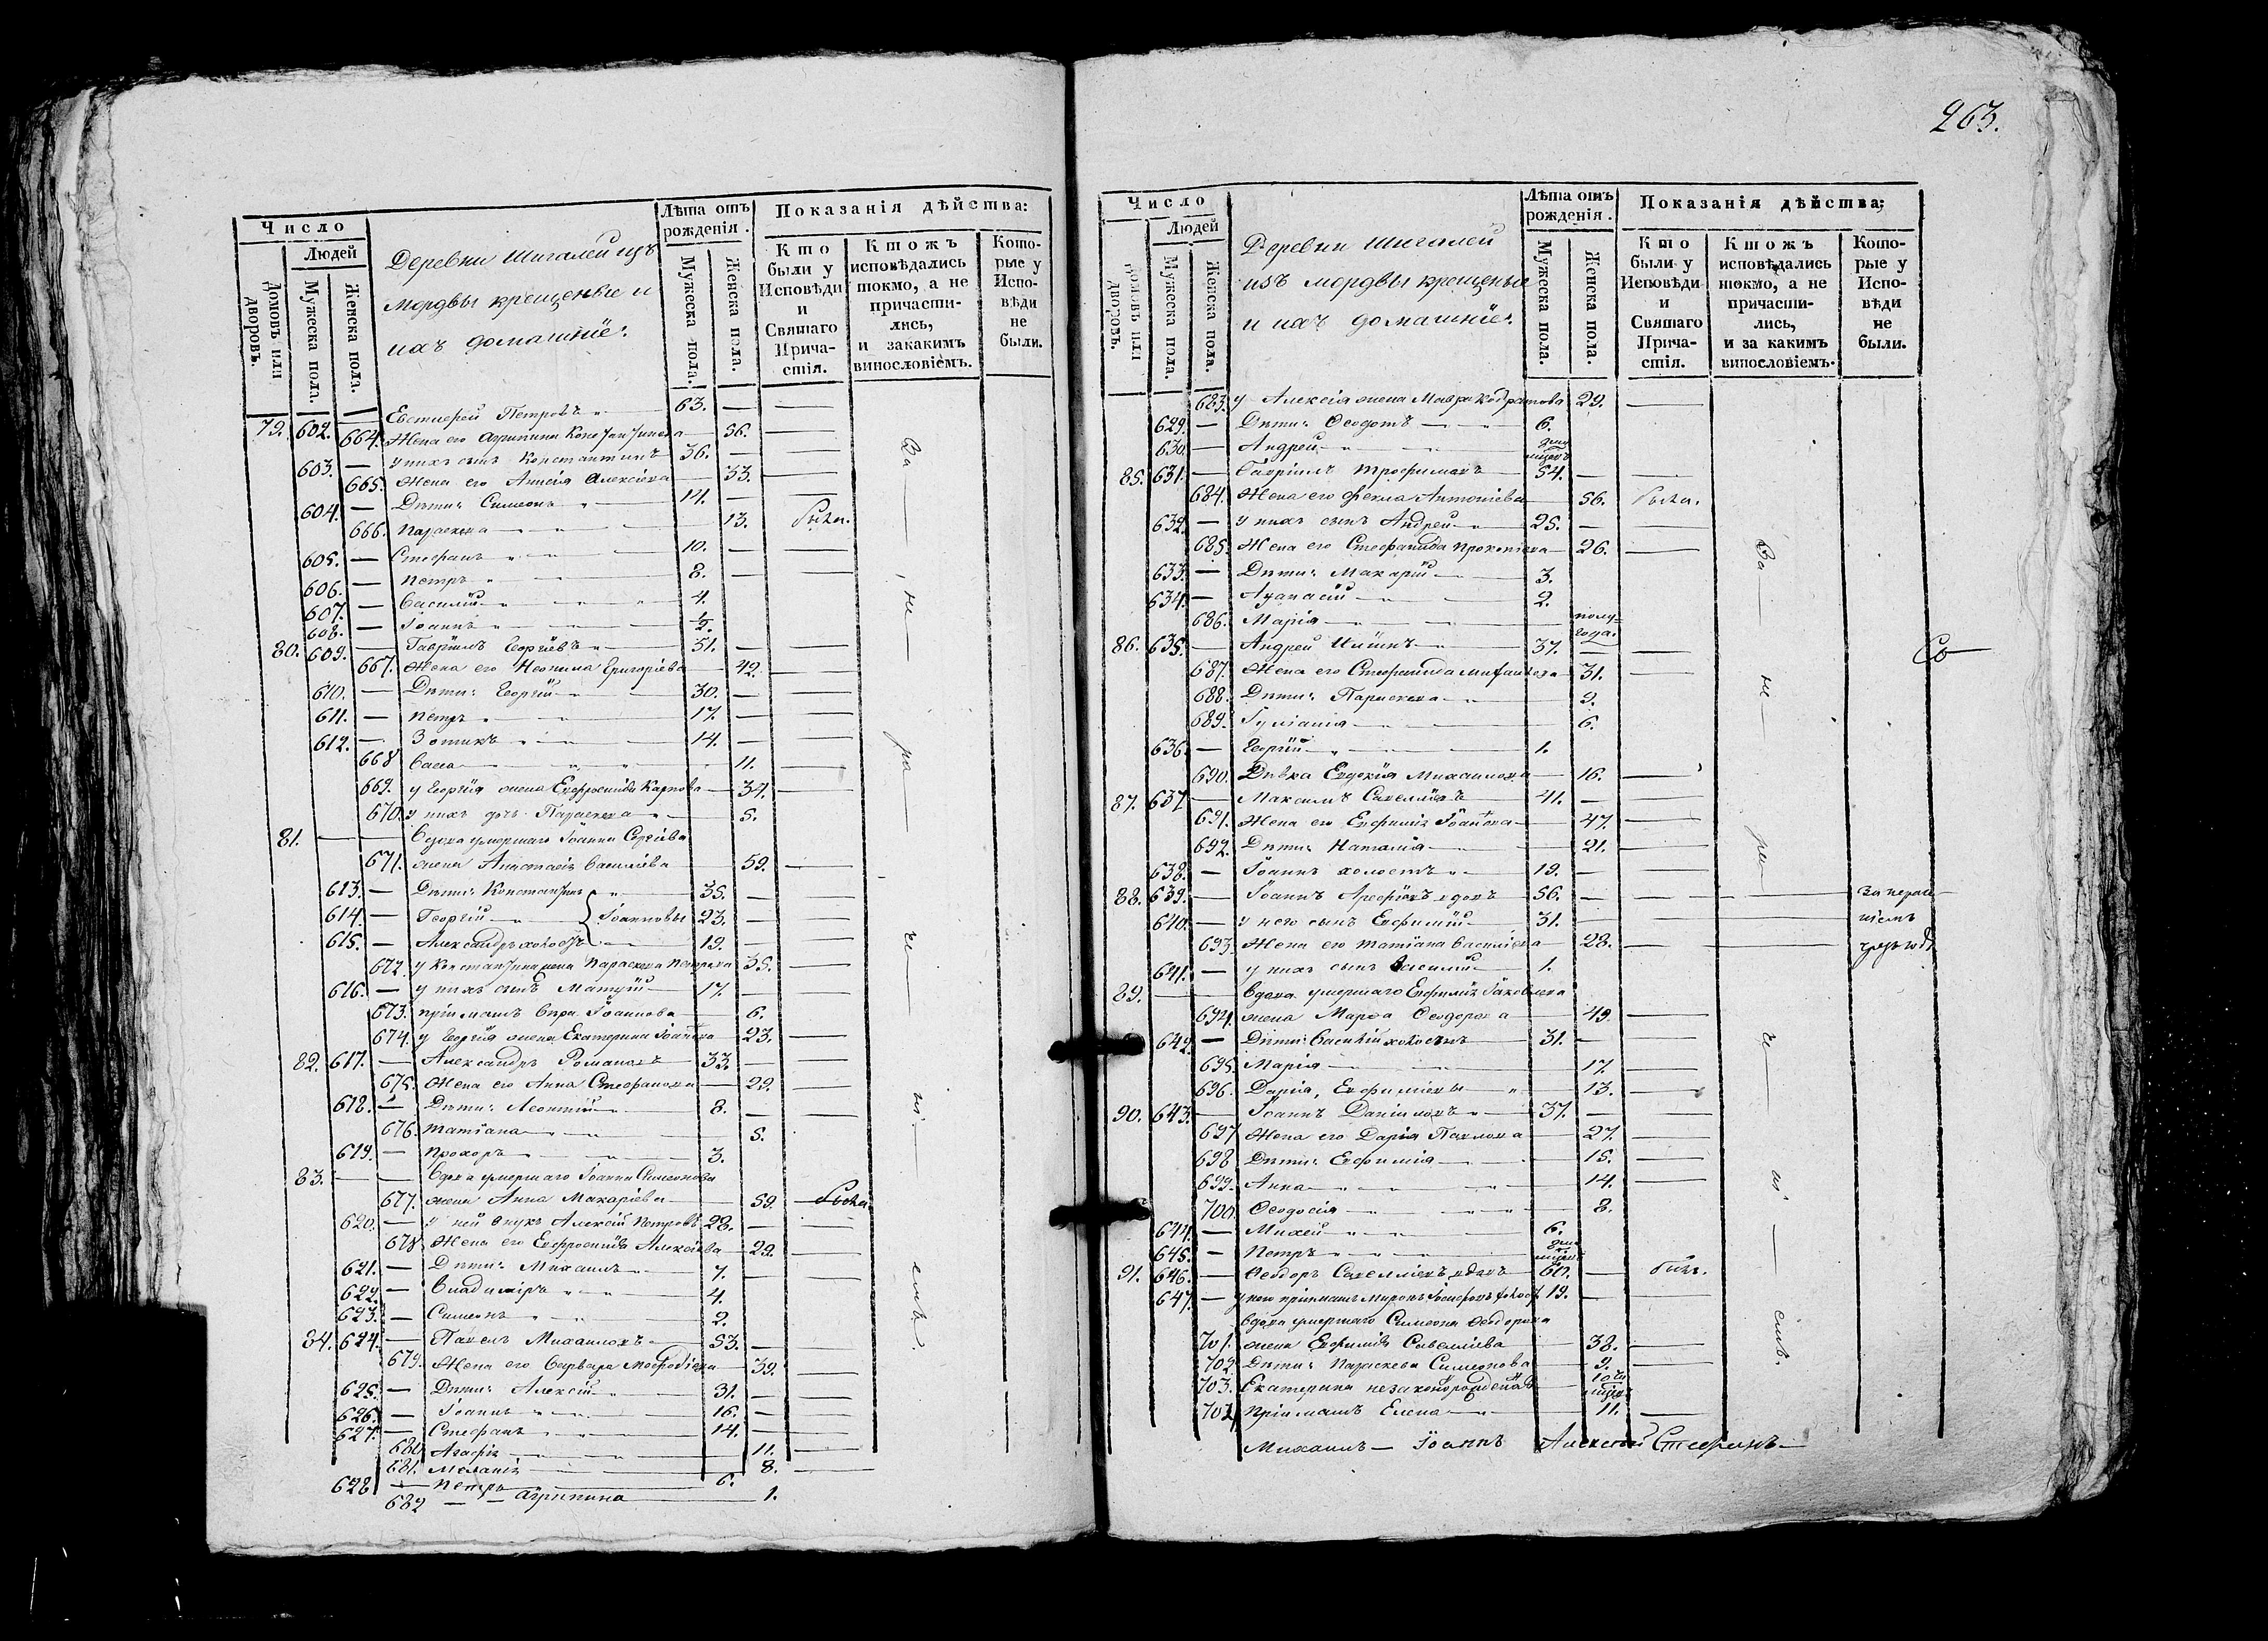 263.
Число
Людей
Домовъ или дворовъ.
Мужеска пола.
Женска пола.
Деревни Шигалей изъ
мордвы крещеные и
ихъ домашніе:
Лѣта отъ рожденія.
Мужеска пола.
Женска пола.
Показанія дѣйства:
Кто были у Исповѣди и Святаго Прича-стія.
Ктожъ исповѣдались токмо, а не причасти-лись, и закакимъ винословіемъ.
Кото-рые у Испо-вѣди не были.
79. 602. — Евстифей Петровъ 63. —
664. Жена его Агрипина Константинова — 56.
603. — у нихъ сынъ Константинъ 36. —
665. Жена его Алексіева — 33.
604. — Дѣти: Симеонъ 14. —
666. Параскева 13. были.
605. — Стефанъ 10. —
606. — Петръ 8. —
607. — Василій 4.
608. — Іоаннъ ½.
80. 609. — Гавріилъ Георгіевъ 51. —
667. Жена его Неонила Григоріева — 42.
610. — Дѣти: Георгій 30. —
611. — Петръ 17. —
612. — Зотикъ 14. —
668 Васса 11.
669. у Георгія жена Евфросинія Карпова — 34.
670. у нихъ дочь Параскева 5.
81. — — Вдова умершаго Іоанна Сергіева
671. жена Анастасія Василіева 59.
613. — Дѣти: Константинъ 35. —
614. — Георгій Іоанновы 23. —
615. — Александръ холостъ 19. —
672. у Константина жена Параскева Петрова 35.
616. — у нихъ сынъ Матѳій 17. —
673. пріймашъ Вѣра Іоаннова 6.
674. у Георгія жена Екатерина Іоаннова 23.
82. 617. — Александръ Романовъ 33. —
675. Жена его Анна Стефанова — 29.
618. — Дѣти: Леонтій 8. —
676. Татіана 5.
619. — Прохоръ 3.
83. — — Вдова умершаго Іоанна Симеонова
677. жена Анна Макаріева 59. были
620. — у ней внукъ Алексій Петровъ 28. —
678. Жена его Евфросинія Алексіева 29.
621. — Дѣти: Михаилъ 7. —
622. — Владиміръ 4.
623. — Симеонъ 2.
84. 624. — Павелъ Михаиловъ 53. —
679. Жена его Варвара Меѳодіева — 39.
625. — Дѣти: Алексій 31. —
626. — Іоаннъ 16. —
627. — Стефанъ 14. —
680. Агафія 11.
681. Меланія 8.
628 — Петръ 6.
682 — — Агрипина 1.
За — не — ра — че — ні — емъ.
Число
Людей
Домовъ или дворовъ.
Мужеска пола.
Женска пола.
Деревни Шигалей
изъ мордвы крещеные
и ихъ домашніе:
Лѣта отъ рожденія.
Мужеска пола.
Женска пола.
Показанія дѣйства:
Кто были у Исповѣди и Святаго Прича-стія.
Ктожъ исповѣдались токмо, а не причасти-лись, и за какимъ винословіемъ.
Кото-рые у Испо-вѣди не были.
683. у Алексія жена Мавра Кодратова 29.
629. — Дѣти: Ѳеодотъ 6.
630. — Андрей
85. 631. — Гавріилъ Трофимовъ 54. —
684. Жена его Ѳекла Антоніева 56. были.
632. — у нихъ сынъ Андрей 25. —
685. Жена его Стефанида Прокопіева — 26.
633. — Дѣти: Макарій 3.
634. — Аѳанасій 2.
686. Марія полу-года.
86. 635. — Андрей 37. —
687. Жена его Стефанида 31.
688. Дѣти: Параскева 9.
689. Іуліанія 6.
636. — Георгій 1.
690. Дѣвка Евдокія Михаилова 16.
87. 637 — Максимъ Савеліевъ 41. —
691. Жена его Евфимія Іоаннова 47.
692. Дѣти: Наталія 21.
638. — Іоаннъ холостъ 19. —
88. 639. — Іоаннъ Арефіевъ вдовъ 56. — за нераче-
640. — у него сынъ Евфимій 31. — ніемъ
693. Жена его Татіана Василіева 28.
641. — у нихъ сынъ Василій 1.
89. — — Вдова умершаго Евфимія Іаковлева
694. жена Марѳа Ѳеодорова 49.
642. — Дѣти: Василій холостъ 31. —
695. Марія 17.
696. Дарія, Евфиміевы 13.
90. 643. — Іоаннъ Даніиловъ 37. —
697 Жена его Дарія Павлова 27.
698. Дѣти: Евфимія 15.
699. Анна 14.
700. Ѳеодосія 8.
644. — Михей 6.
645. — Петръ
91. 646. — Ѳеодоръ Савелліевъ вдовъ 60. — были.
647. — у него пріймашъ Миронъ Іосифовъ холост 19. —
вдова умершаго Симеона Ѳеодорова
701. жена Евфимія Савелліева 38.
702. Дѣти: Параскева Симеонова 9.
703. Екатерина незаконорожденая
704. Пріймашъ Елена 11.
За — не — ра — че — ні — емъ.
Михаилъ — Іоаннъ Алексѣй Стефанъ —